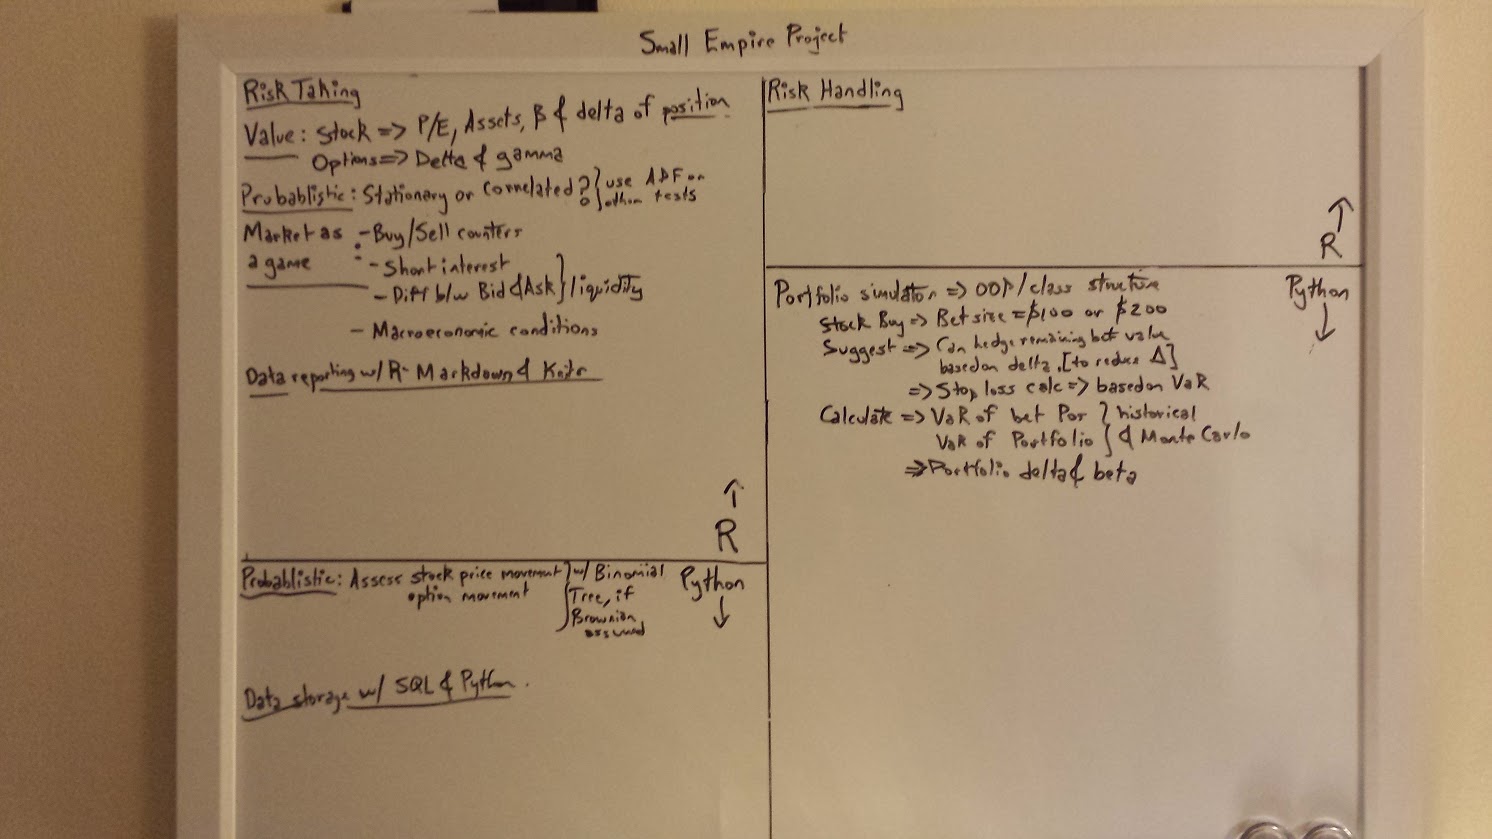 Small Empire Project
Risk Taking
Value: Stock => P/E, Assets, β & delta of position
Options => Delta & gamma
Probablistic: Stationary or Correlated? } use ADF or
other tests
Market as
a game : - Buy/Sell counters
- Short interest
- Diff b/w Bid & Ask } liquidity
- Macroeconomic conditions
Data reporting w/ R-Markdown & Knitr
↑
R
Probablistic: Assess stock price movement } w/ Binomial
option movement Tree, if
Brownian
assumed
Python
↓
Data storage w/ SQL & Python.
Risk Handling
↑
R
Portfolio simulator => OOP/class structure
Python
↓
Stock Buy => Bet size = $100 or $200
Suggest => Can hedge remaining bet value
based on delta. [to reduce Δ]
=> Stop loss calc => based on VaR
Calculate => VaR of bet Por } historical
VaR of Portfolio } & Monte Carlo
=> Portfolio delta & beta